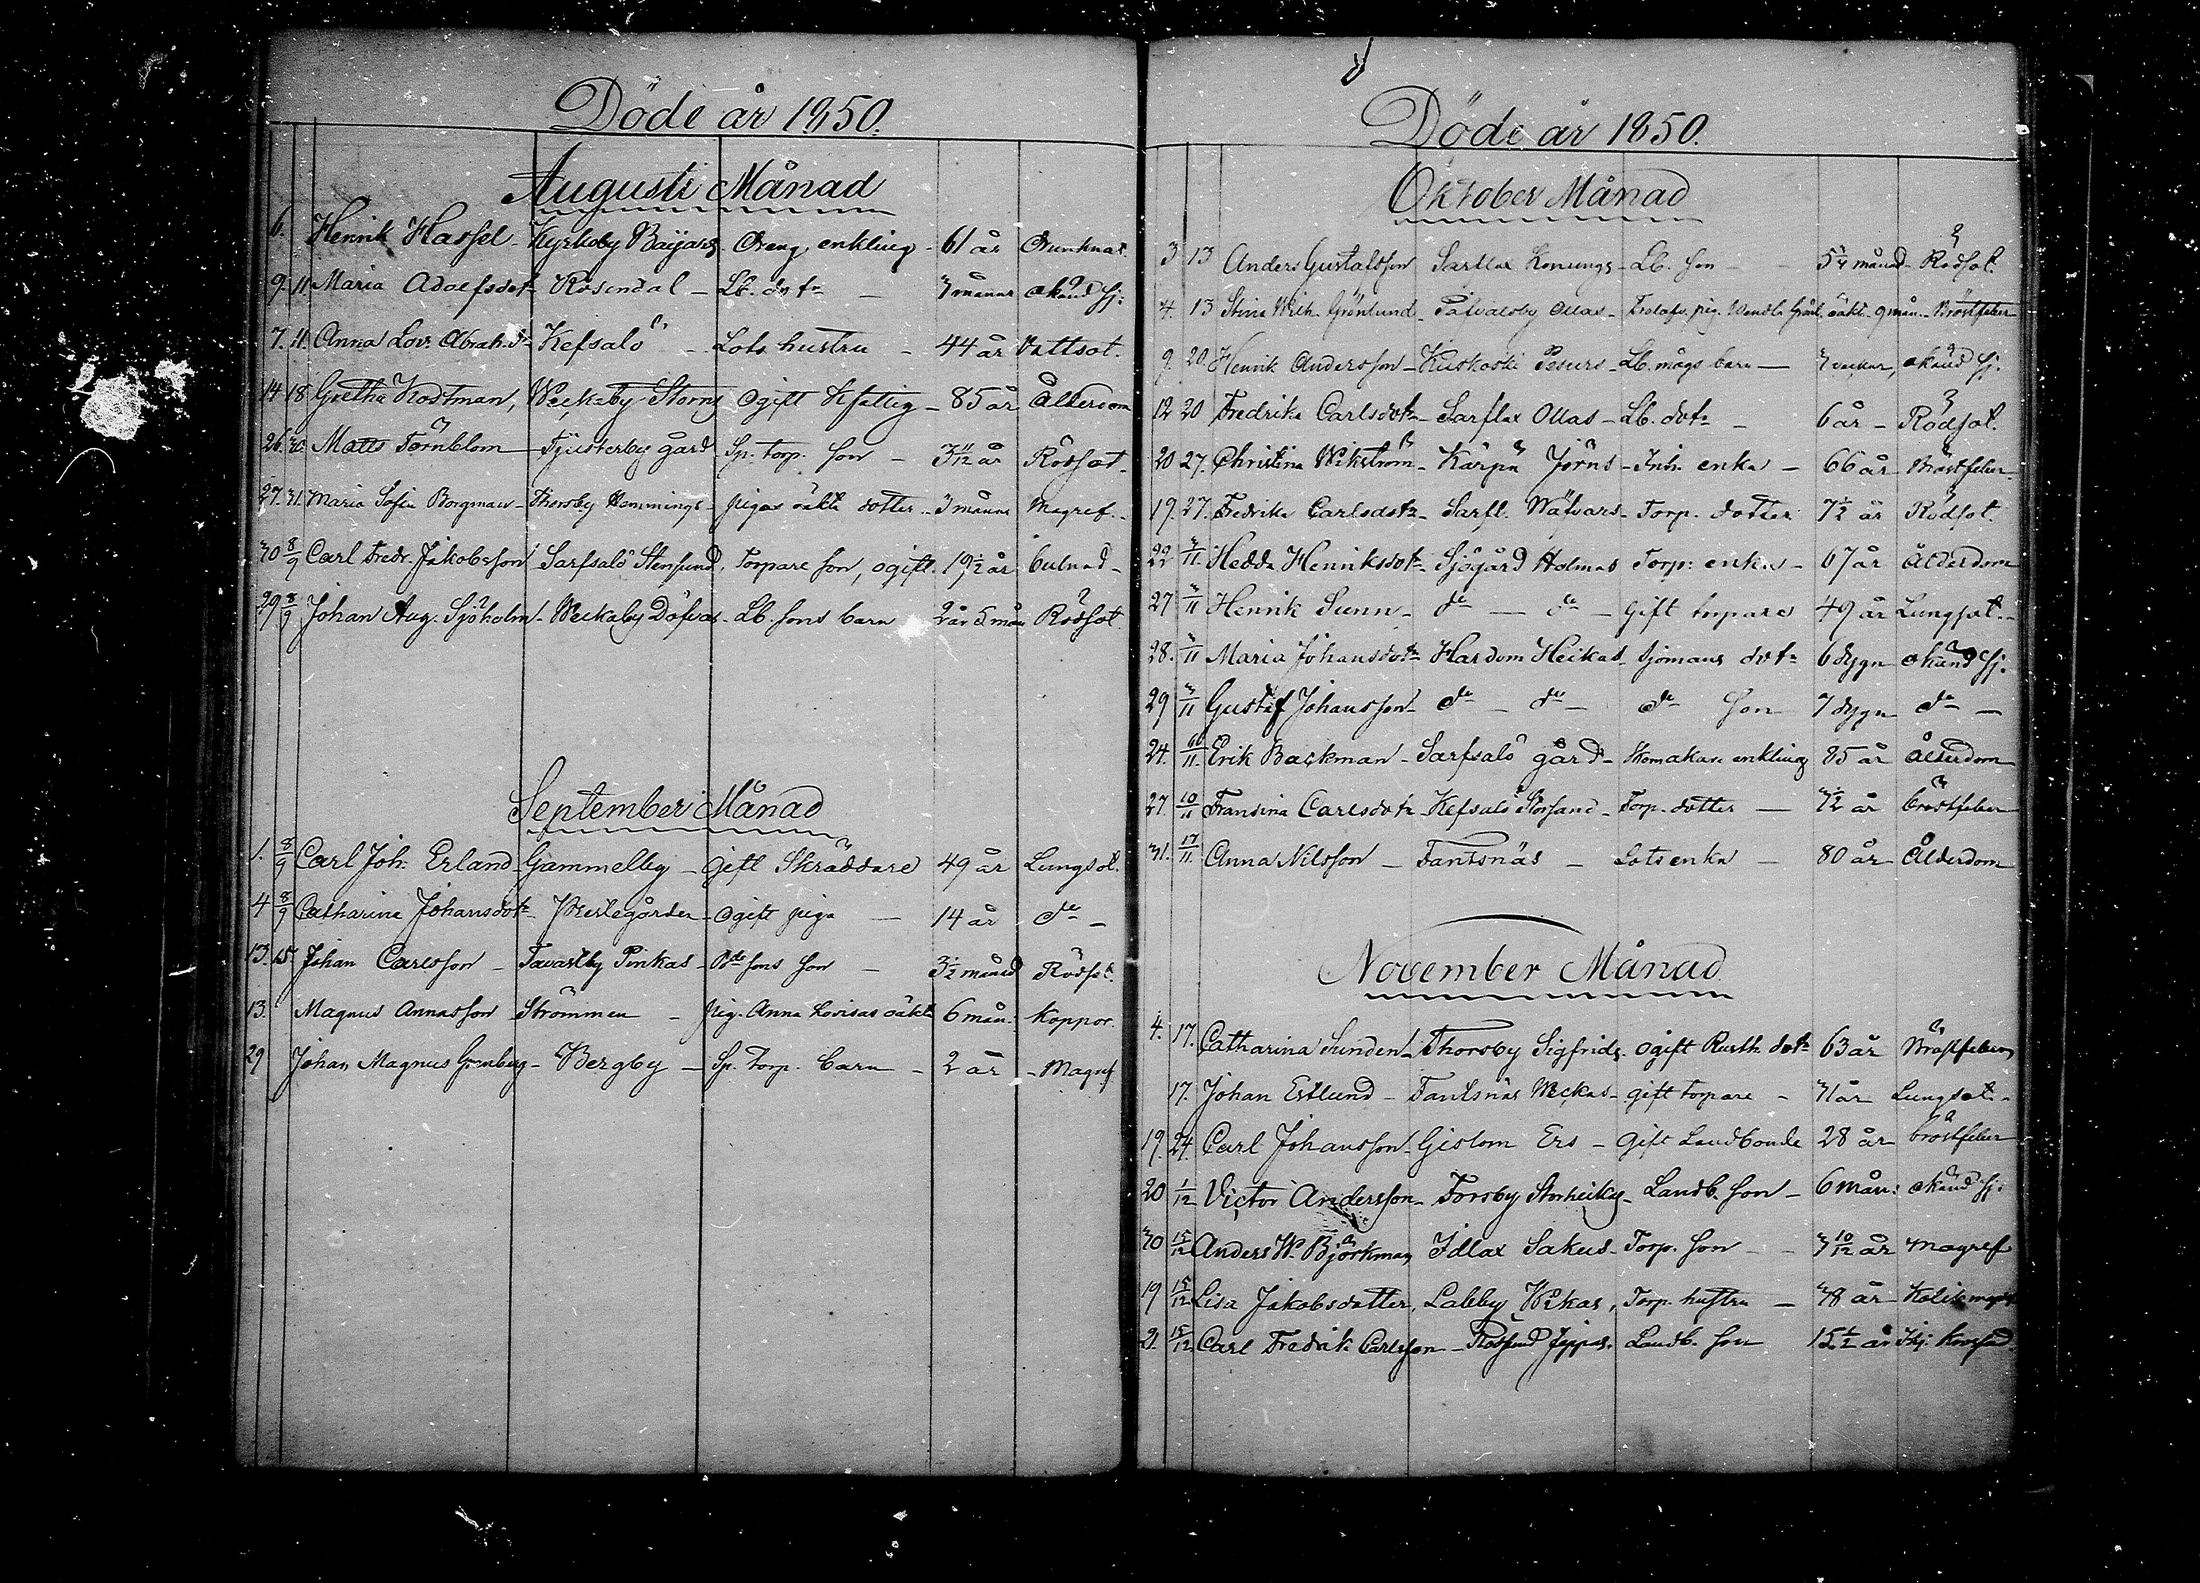 Döde år 1850.
Augusti Månad
6. Henrik Hassel - Kyrkoby Baijars Dreng, enkling - 61 år Drunknat
9. 11. Maria Adolfsdotr Rosendal - Lb. dotr - 3 månar okänd sj:
7. 11. Anna Lovs Abrah. dr Kefsalö - Lots hustru - 44 år Vattsot.
14 18 Gretha Rostman, Weckoby Storns Ogift & fattig - 85 år Ålderdom
26. 30. Matts Törnblom Tjusterby gård Sp. torp. son - 3 11/12 år Rödsot -
27. 31. Maria Sofia Borgman - Thorsby Hemmings - pigas oäkta dotter - 3 månar Magref. -
30 8/9 Carl Fredr. Jakobsson Sarfsalö Stensund, Torpare son, ogift. 19 1/2 år bulnad -
29 8/9 Johan Aug. Sjöholm - Weckoby Döfvas - Lb. sons barn 2 år 5 mån Rödsot
September Månad
1. 8/9 Carl Joh. Erland - Gammelby - Gift Skräddare 49 år Lungsot.
4 8/9 Catharina Johansdotr Prestegården - Ogift piga - 14 år do -
13. 15. Johan Carlsson - Tavastby Pinkas - Bde sons son - 3 1/2 månad Rödsot.
13. Magnus Annasson Strömmen - Pig. Anna Lovisas oäkt. 6 mån. Koppor.
29 Johan Magnus Grenberg - Bergby - Sp. Torp. barn - 2 år - Magref
Döde år 1850.
Oktober Månad
3 13 Anders Gustafsson Sarflax Konungs - Lb. son - 5 1/4 månad - Rödsot.
4. 13 Stina Wilh. Grönlund - Påvalsby Ollas - pig. Wendla Grönl. oäkt. 9 mån. - Bröstfeber
9. 20. Henrik Andersson - Kuskoski Pesurs - Lb. mågs barn - 3 veckor, okänd sj.
12 20 Fredrika Carlsdotr - Sarflax Ollas - Lb. dotr - 6 år - Rödsot.
20 27. Christina Wikström - Kärpä Jöräs - Inh. enka - 66 år Bröstfeber -
19. 27. Fredrika Carlsdotr - Sarfl. Wäfvars - Torp. dotter 7 1/2 år Rödsot.
22 3/11. Hedda Henriksdotr - Sjögård Holmas Torp: enka - 67 år Ålderdom
27 3/11 Henrik Sunn - do - do - Gift torpare 49 år Lungsot. -
28. 3/11 Maria Johansdotr Hardom Heikas Sjömans dotr 6 dygn okänd sj.
29 3/11 Gustaf Johansson - do - do - do son 7 dygn do -
24. 10/11. Erik Backman - Sarfsalö gård - Skomakare enkling 85 år Ålderdom
27. 10/11 Fransina Carlsdotr - Kefsalö Storsand - Torp. dotter - 3 1/2 år bröstfeber
31. 17/11. Anna Nilsson - Fantsnäs - Lots enka - 80 år Ålderdom
November Månad
4. 17. Catharina Sunden - Thorsby Sigfrids - Ogift Rusth. dotr 63 år Bröstfeber
17. Johan Estlund - Fantsnäs Weckas - gift torpare - 31 år Lungsot. -
19. 24. Carl Johansson - Gislom Ers - Gift Landbonde 28 år bröstfeber
20 1/12 Victor Andersson - Forsby Storheikes - Landb. son - 6 mån: okänd sj:
30 15/12 Anders W. Björkman Idlax Sakus - Torp. son - 3 10/12 år Magref
19 15/12 Lisa Jakobsdotter, Labby Wikas, Torp. hustru - 38 år Kolik
21. 15/12 Carl Fredrik Carlsson - Rösund Jeppas. Landb. son 15 1/2 år